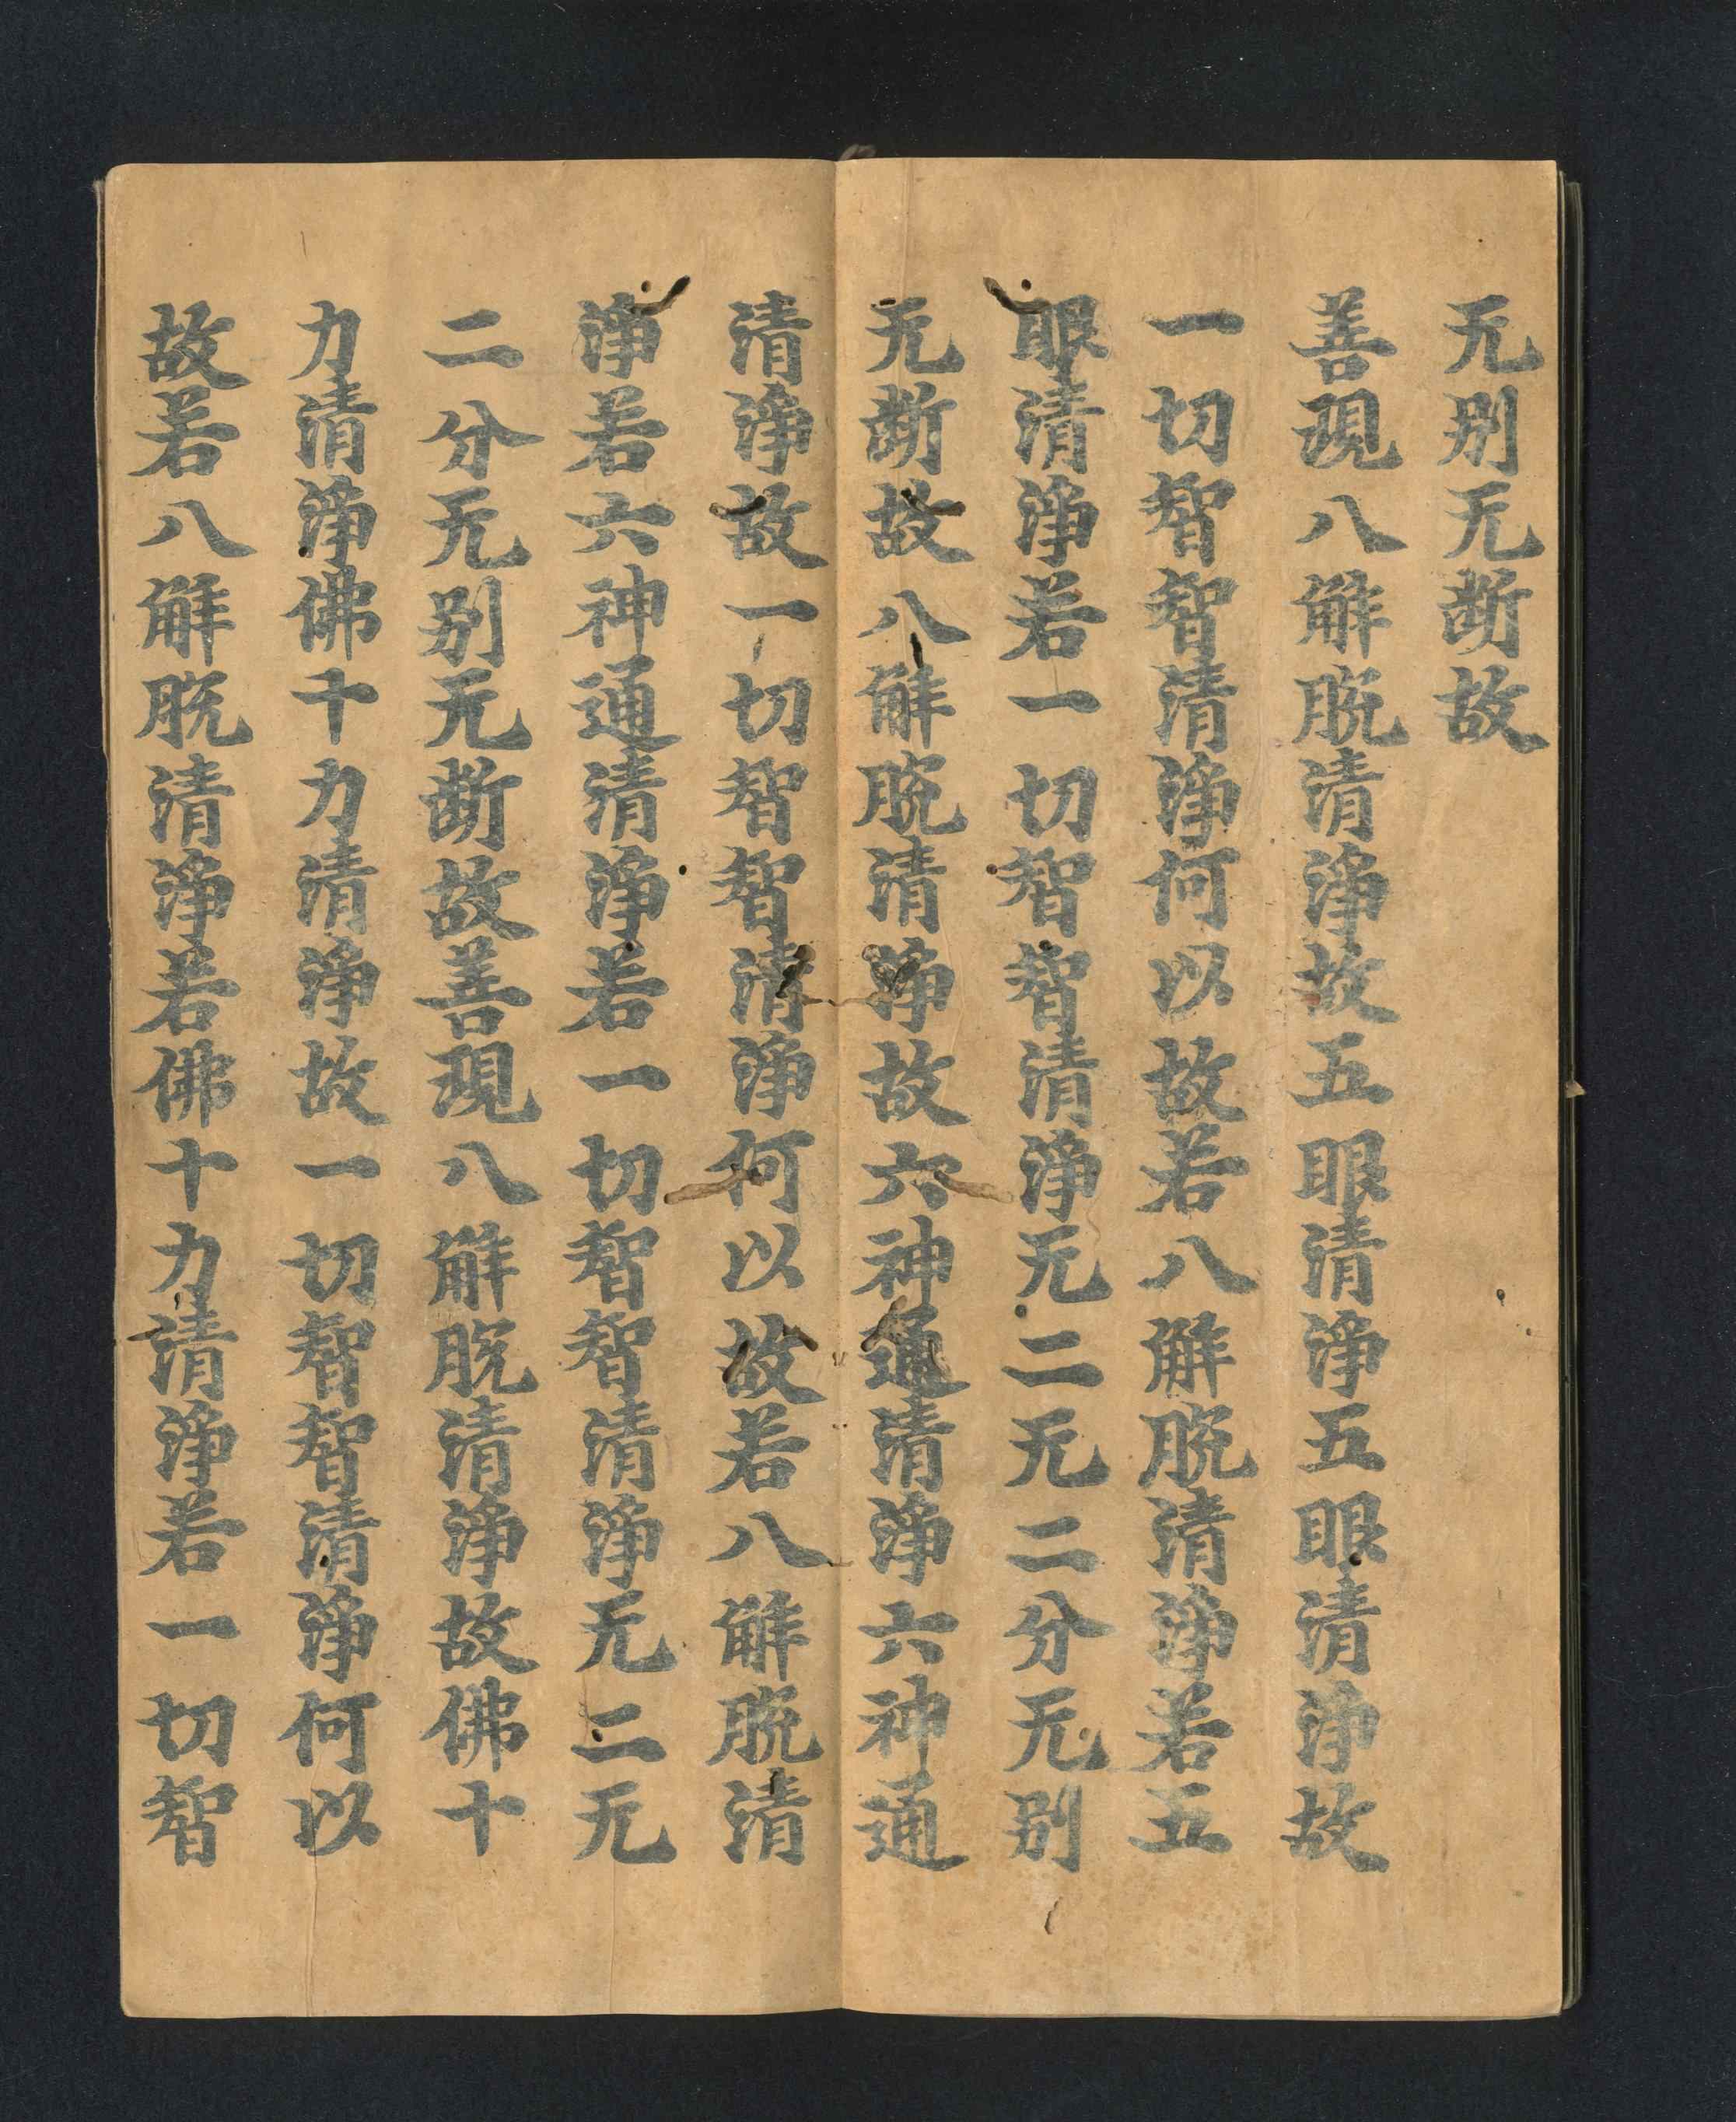 无别无断故
善現八解脫清淨故五眼清淨五眼清淨故
一切智智清淨何以故若八解脫清淨若五
眼清淨若一切智智清淨无二无二分无别
无断故八解脫清淨故六神通清淨六神通
清淨故一切智智清淨何以故若八解脫清
淨若六神通清淨若一切智智清淨无二无
二分无别无断故善現八解脫清淨故佛十
力清淨佛十力清淨故一切智智清淨何以
故若八解脫清淨若佛十力清淨若一切智